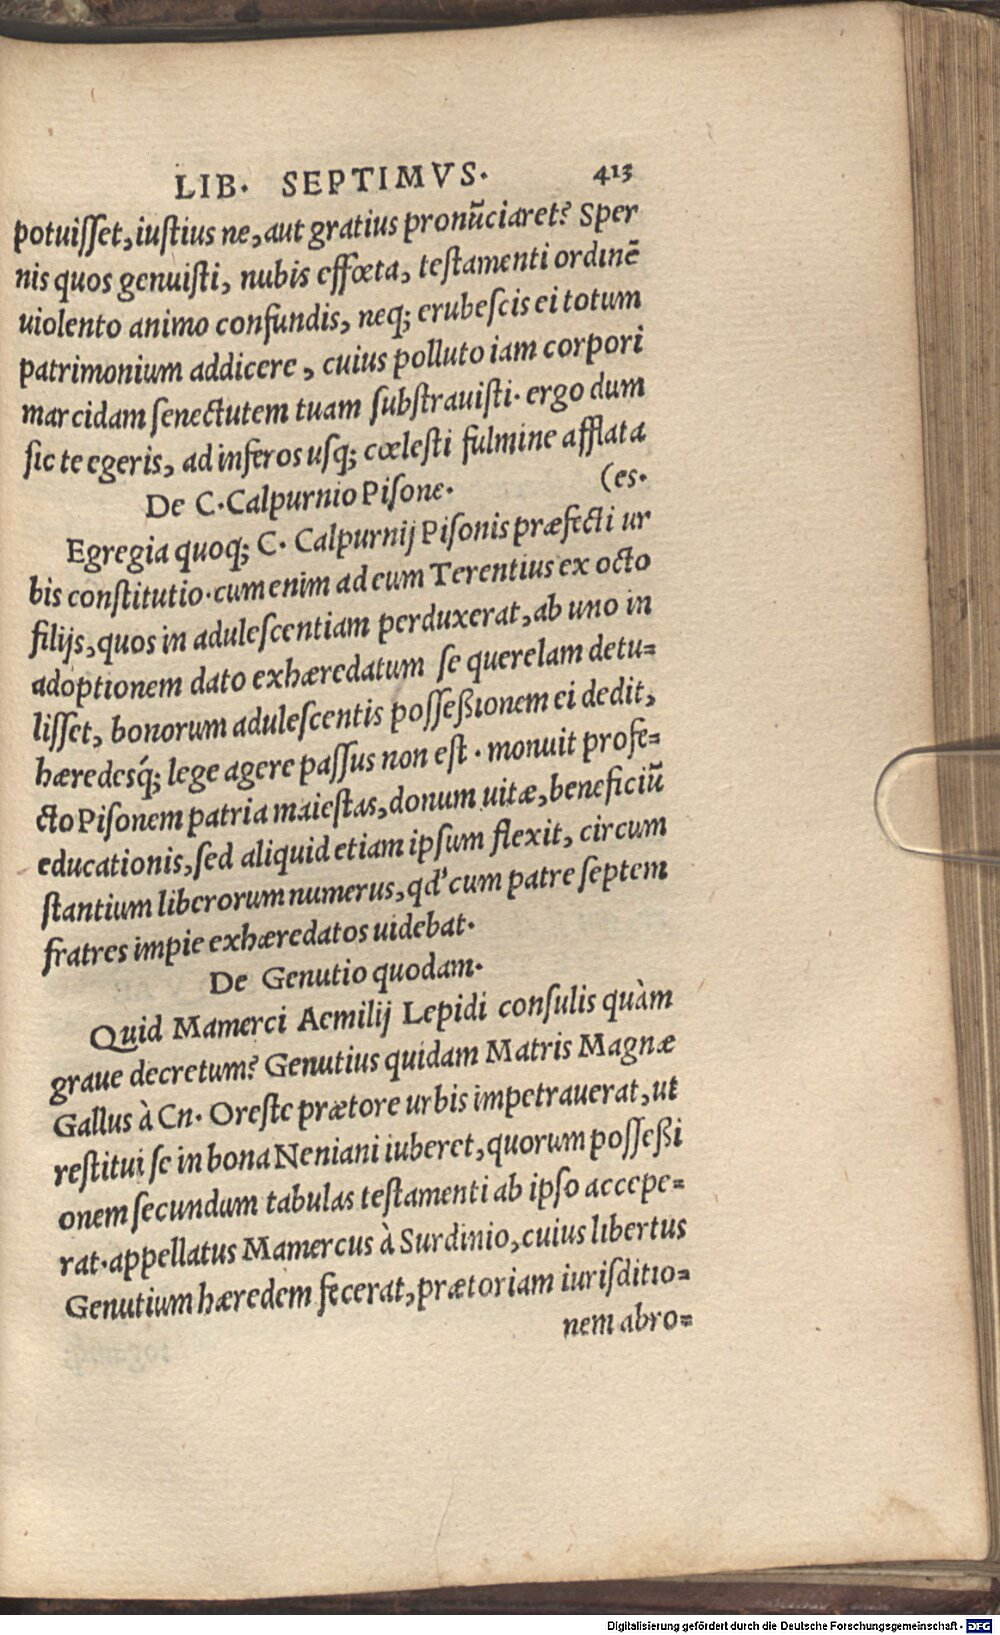 LIB. SEPTIMVS. 413
potuiſſet, iuſtius ne, aut gratius pronūciaret? Sper
nis quos genuiſti, nubis effœta, teſtamenti ordinē
uiolento animo confundis, neq; erubeſcis ei totum
patrimonium addicere, cuius polluto iam corpori
marcidam ſenectutem tuam ſubſtrauiſti. ergo dum
ſic te egeris, ad inferos uſq; cœleſti fulmine afflata
De C. Calpurnio Piſone. (es.
Egregia quoq; C. Calpurnij Piſonis præfecti ur
bis conſtitutio. cum enim ad eum Terentius ex octo
filijs, quos in aduleſcentiam perduxerat, ab uno in
adoptionem dato exhæredatum ſe querelam detu=
liſſet, bonorum aduleſcentis poſſeßionem ei dedit,
hæredesq́; lege agere paſſus non eſt. monuit profe=
cto Piſonem patria maieſtas, donum uitæ, beneficiū
educationis, ſed aliquid etiam ipſum flexit, circum
ſtantium liberorum numerus, qd' cum patre ſeptem
fratres impie exhæredatos uidebat.
De Genutio quodam.
Quid Mamerci Aemilij Lepidi conſulis quàm
graue decretum? Genutius quidam Matris Magnæ
Gallus à Cn. Oreſte prætore urbis impetrauerat, ut
reſtitui ſe in bona Neniani iuberet, quorum poſſeßi
onem ſecundum tabulas teſtamenti ab ipſo accepe=
rat. appellatus Mamercus à Surdinio, cuius libertus
Genutium hæredem fecerat, prætoriam iuriſditio=
nem abro=
Digitalisierung gefördert durch die Deutsche Forschungsgemeinschaft - DFG